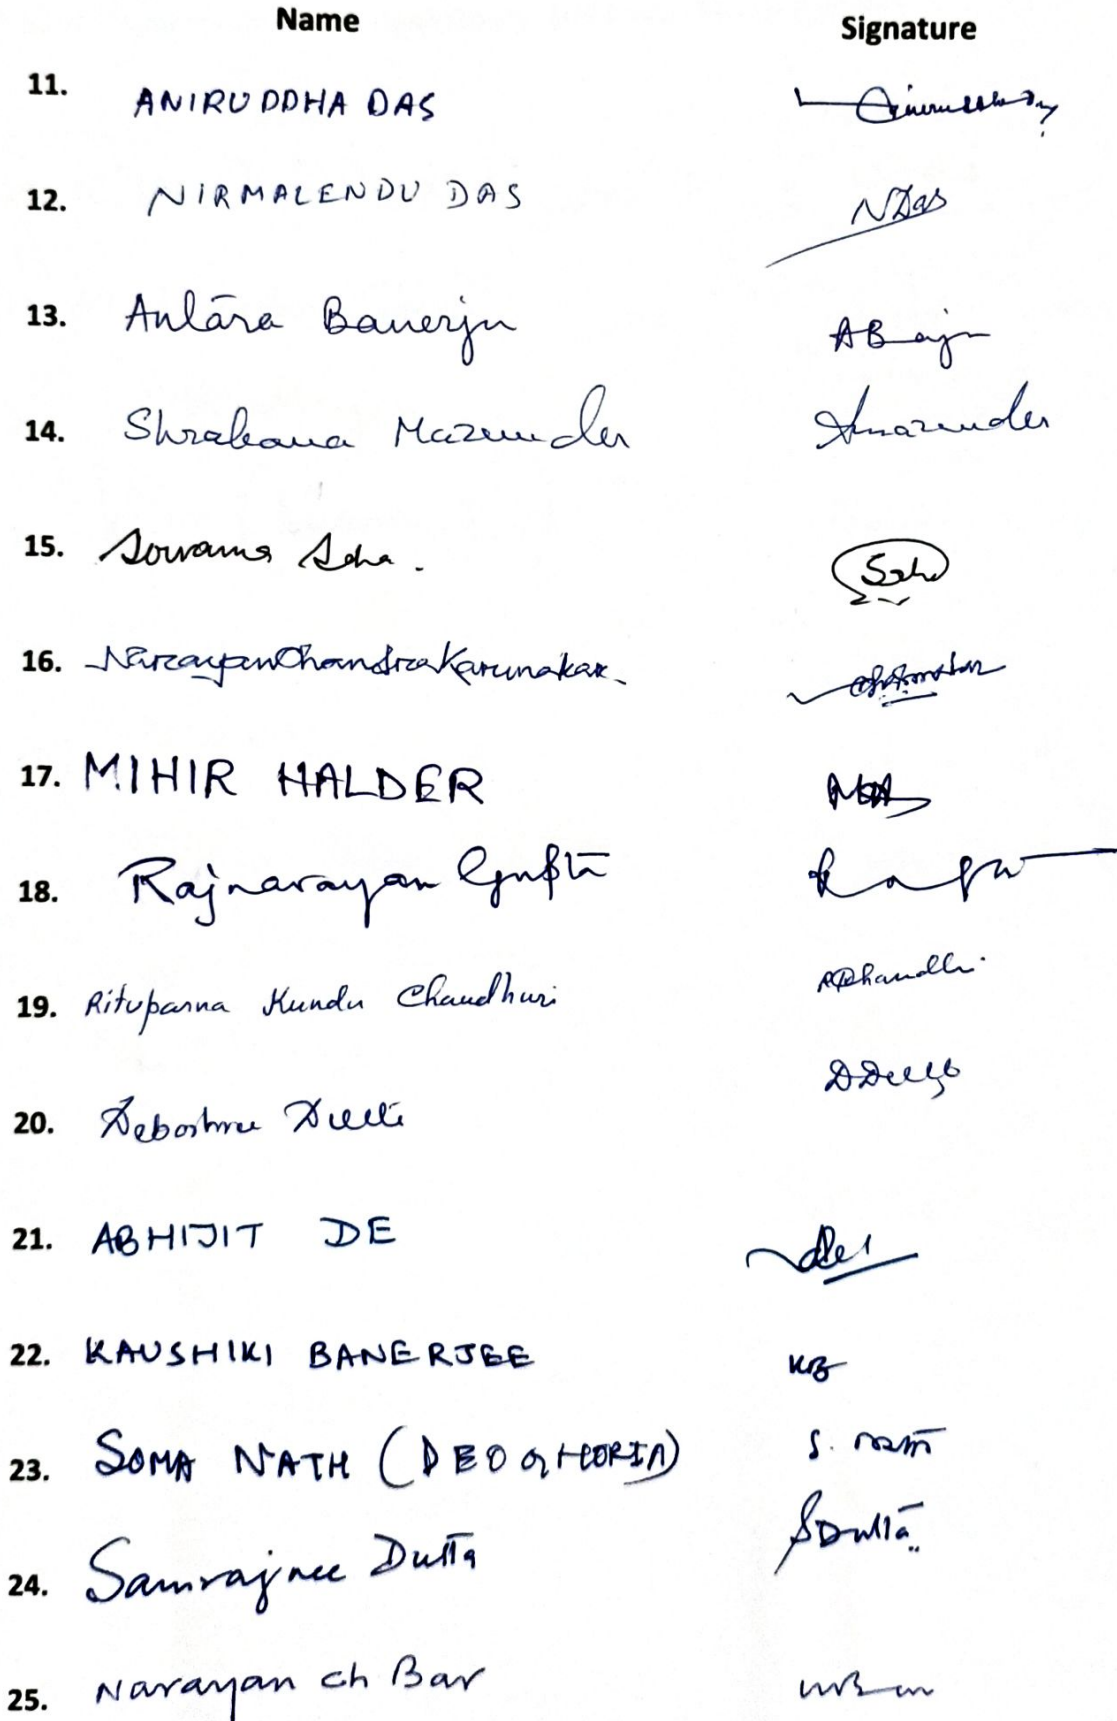 Name Signature
11. ANIRUDDHA DAS
12. NIRMALENDU DAS NDas
13. Antara Banerjee
14. Shrabana Mazumder Smazumder
15. Sowama Saha. Saha
16. Narayan Chandra Karunakar
17. MIHIR HALDER
18. Rajnarayan Gupta
19. Rituparna Kundu Chaudhuri
20. Deboshree Dutta
21. ABHIJIT DE De
22. KAUSHIKI BANERJEE KB
23. SOMA NATH (DEOGHORIA) S. Nath
24. Samrajnee Dutta SDutta
25. Narayan ch Bar